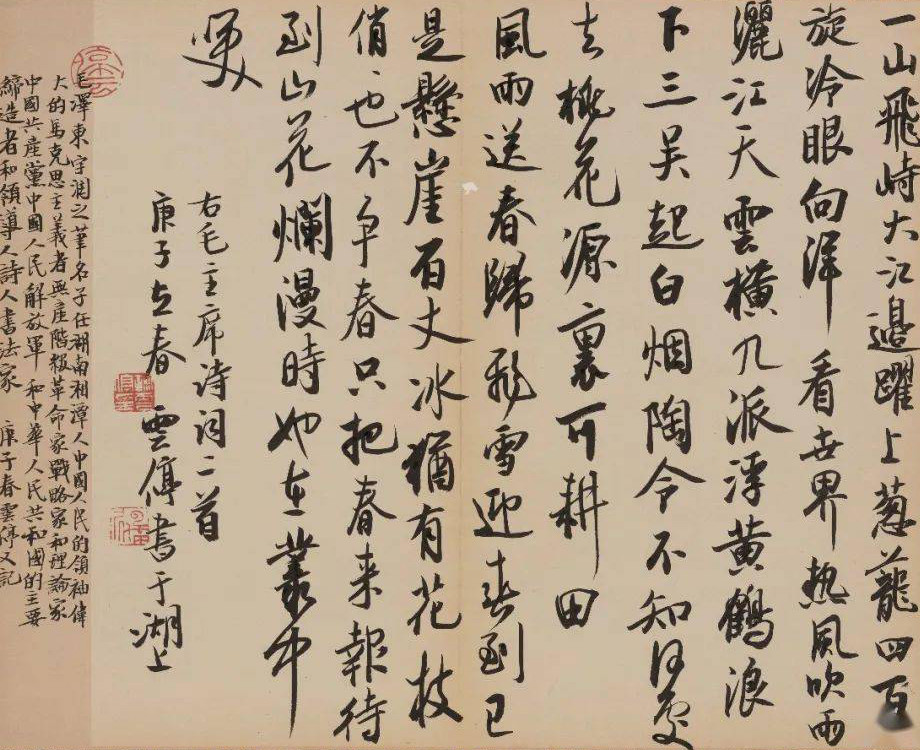 一山飛峙大江邊躍上葱蘢四百
旋冷眼向洋看世界熱風吹雨
灑江天雲橫九派浮黄鶴浪
下三吴起白烟陶令不知何處
去桃花源裏可耕田
風雨送春歸飛雪迎春到已
是懸崖百丈冰猶有花枝
俏、也不争春只把春来報待
到山花爛漫時她在叢中
笑
右毛主席诗词二首
庚子立春 雲停書于湖上
毛澤東字潤之筆名子任湖南湘潭人中國人民的領袖偉
大的馬克思主義者無産階級革命家戰略家和理論家
中國共産黨中國人民解放軍和中華人民共和國的主要
締造者和領導人詩人書法家 庚子春雲停又記